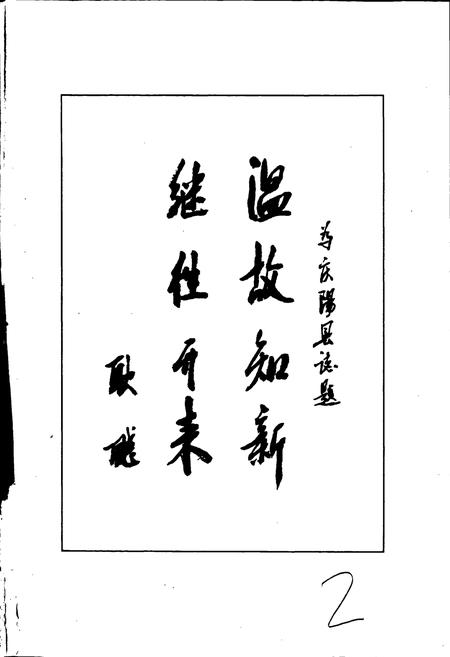 为庆阳县志题
温故知新
继往开来
耿飚
2